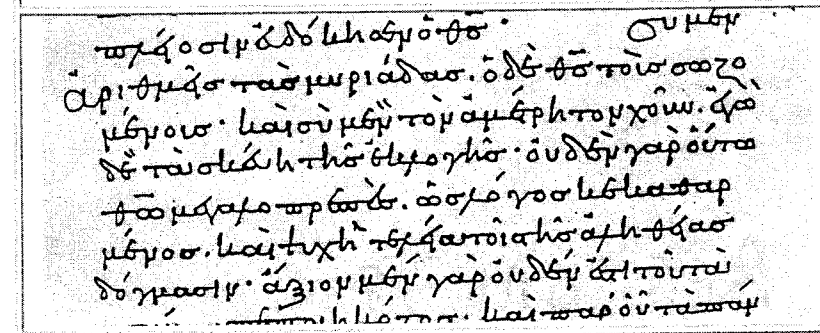 πλείοσιν εὐδόκησεν ὁ θς· σὺ μὲν
ἀριθμεῖς τὰς μυριάδας. ὁ δὲ θς τοὺς σωζο
μένους· καὶ σὺ μὲν τὸν ἀμέτρητον χοῦν. ἐγὼ
δὲ τὰ σκεύη τῆς ἐκλογῆς· οὐδὲν γὰρ οὕτω
θω μεγαλοπρεπὲς. ὡς λόγος κεκαθαρ
μένος. καὶ ψυχὴ τελεία τοῖς τῆς ἀληθείας
δόγμασιν· ἄξιον μὲν γὰρ οὐδὲν ἐστι τοῦ τὰ
πεποιηκότος· καὶ παρ' οὗ τὰ πάν